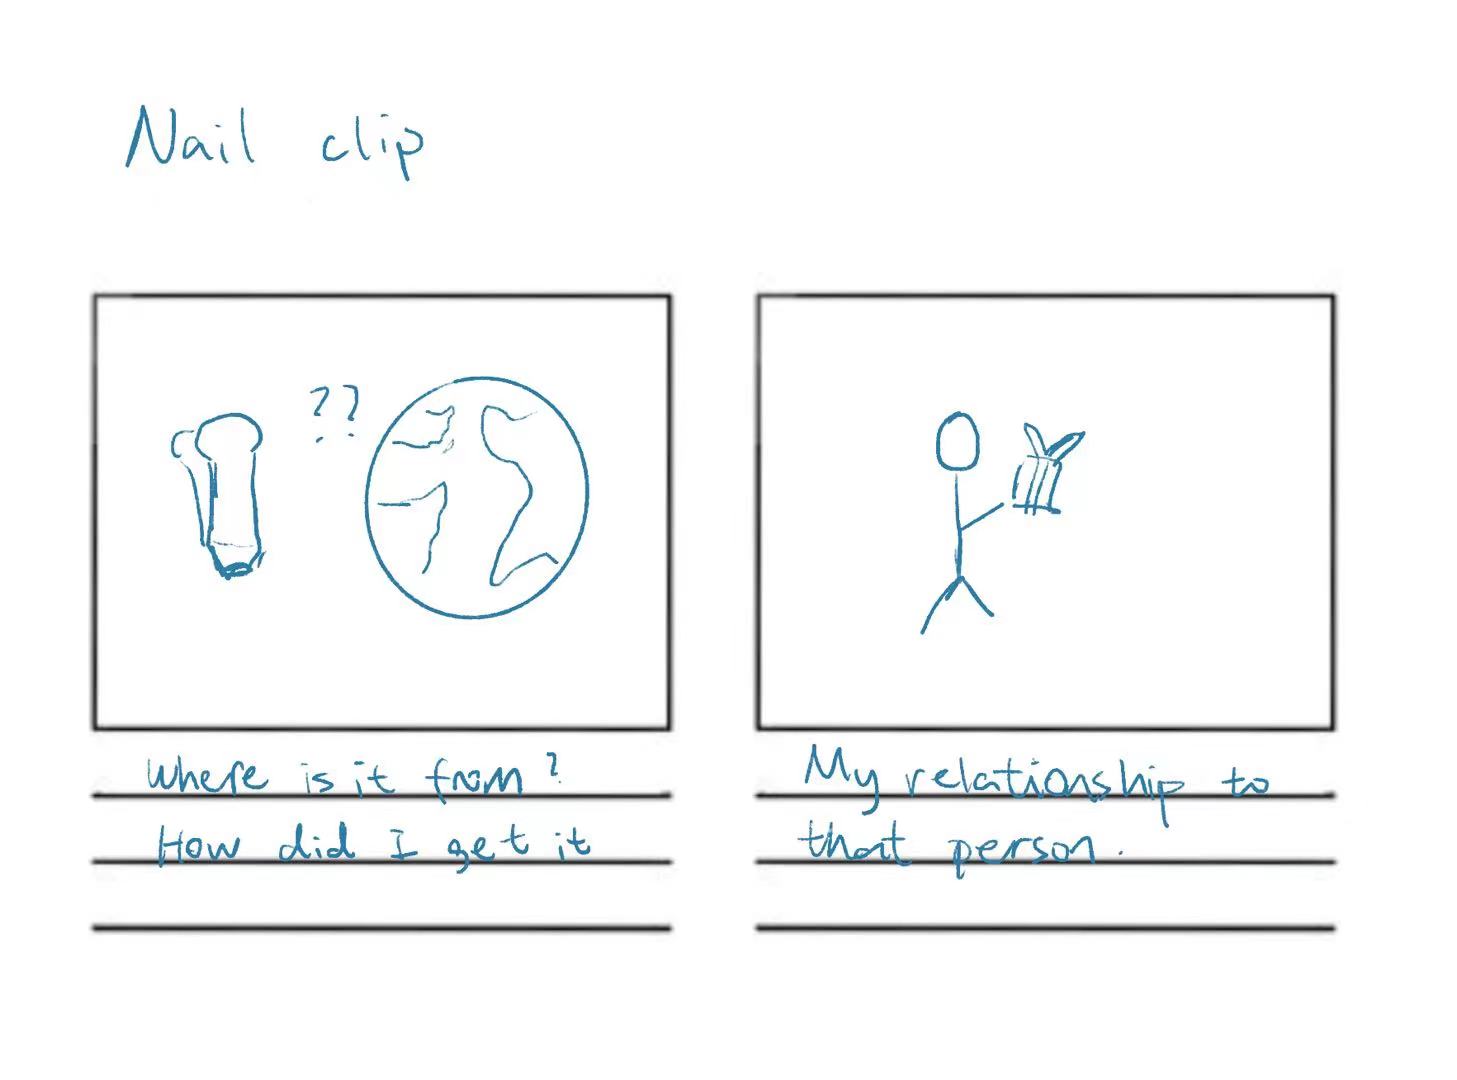 Nail clip
??
Where is it from?
How did I get it
My relationship to
that person.